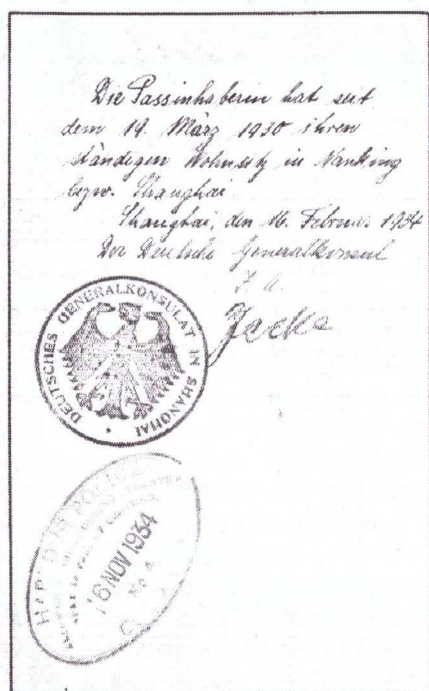 Die Passinhaberin hat seit
dem 19. März 1930 ihren
ständigen Wohnsitz in Nanking
bezw. Shanghai
Shanghai, den 16. Februar 1934
Der Deutsche Generalkonsul
DEUTSCHES GENERALKONSULAT IN SHANGHAI
POLICE
16 NOV 1934
No